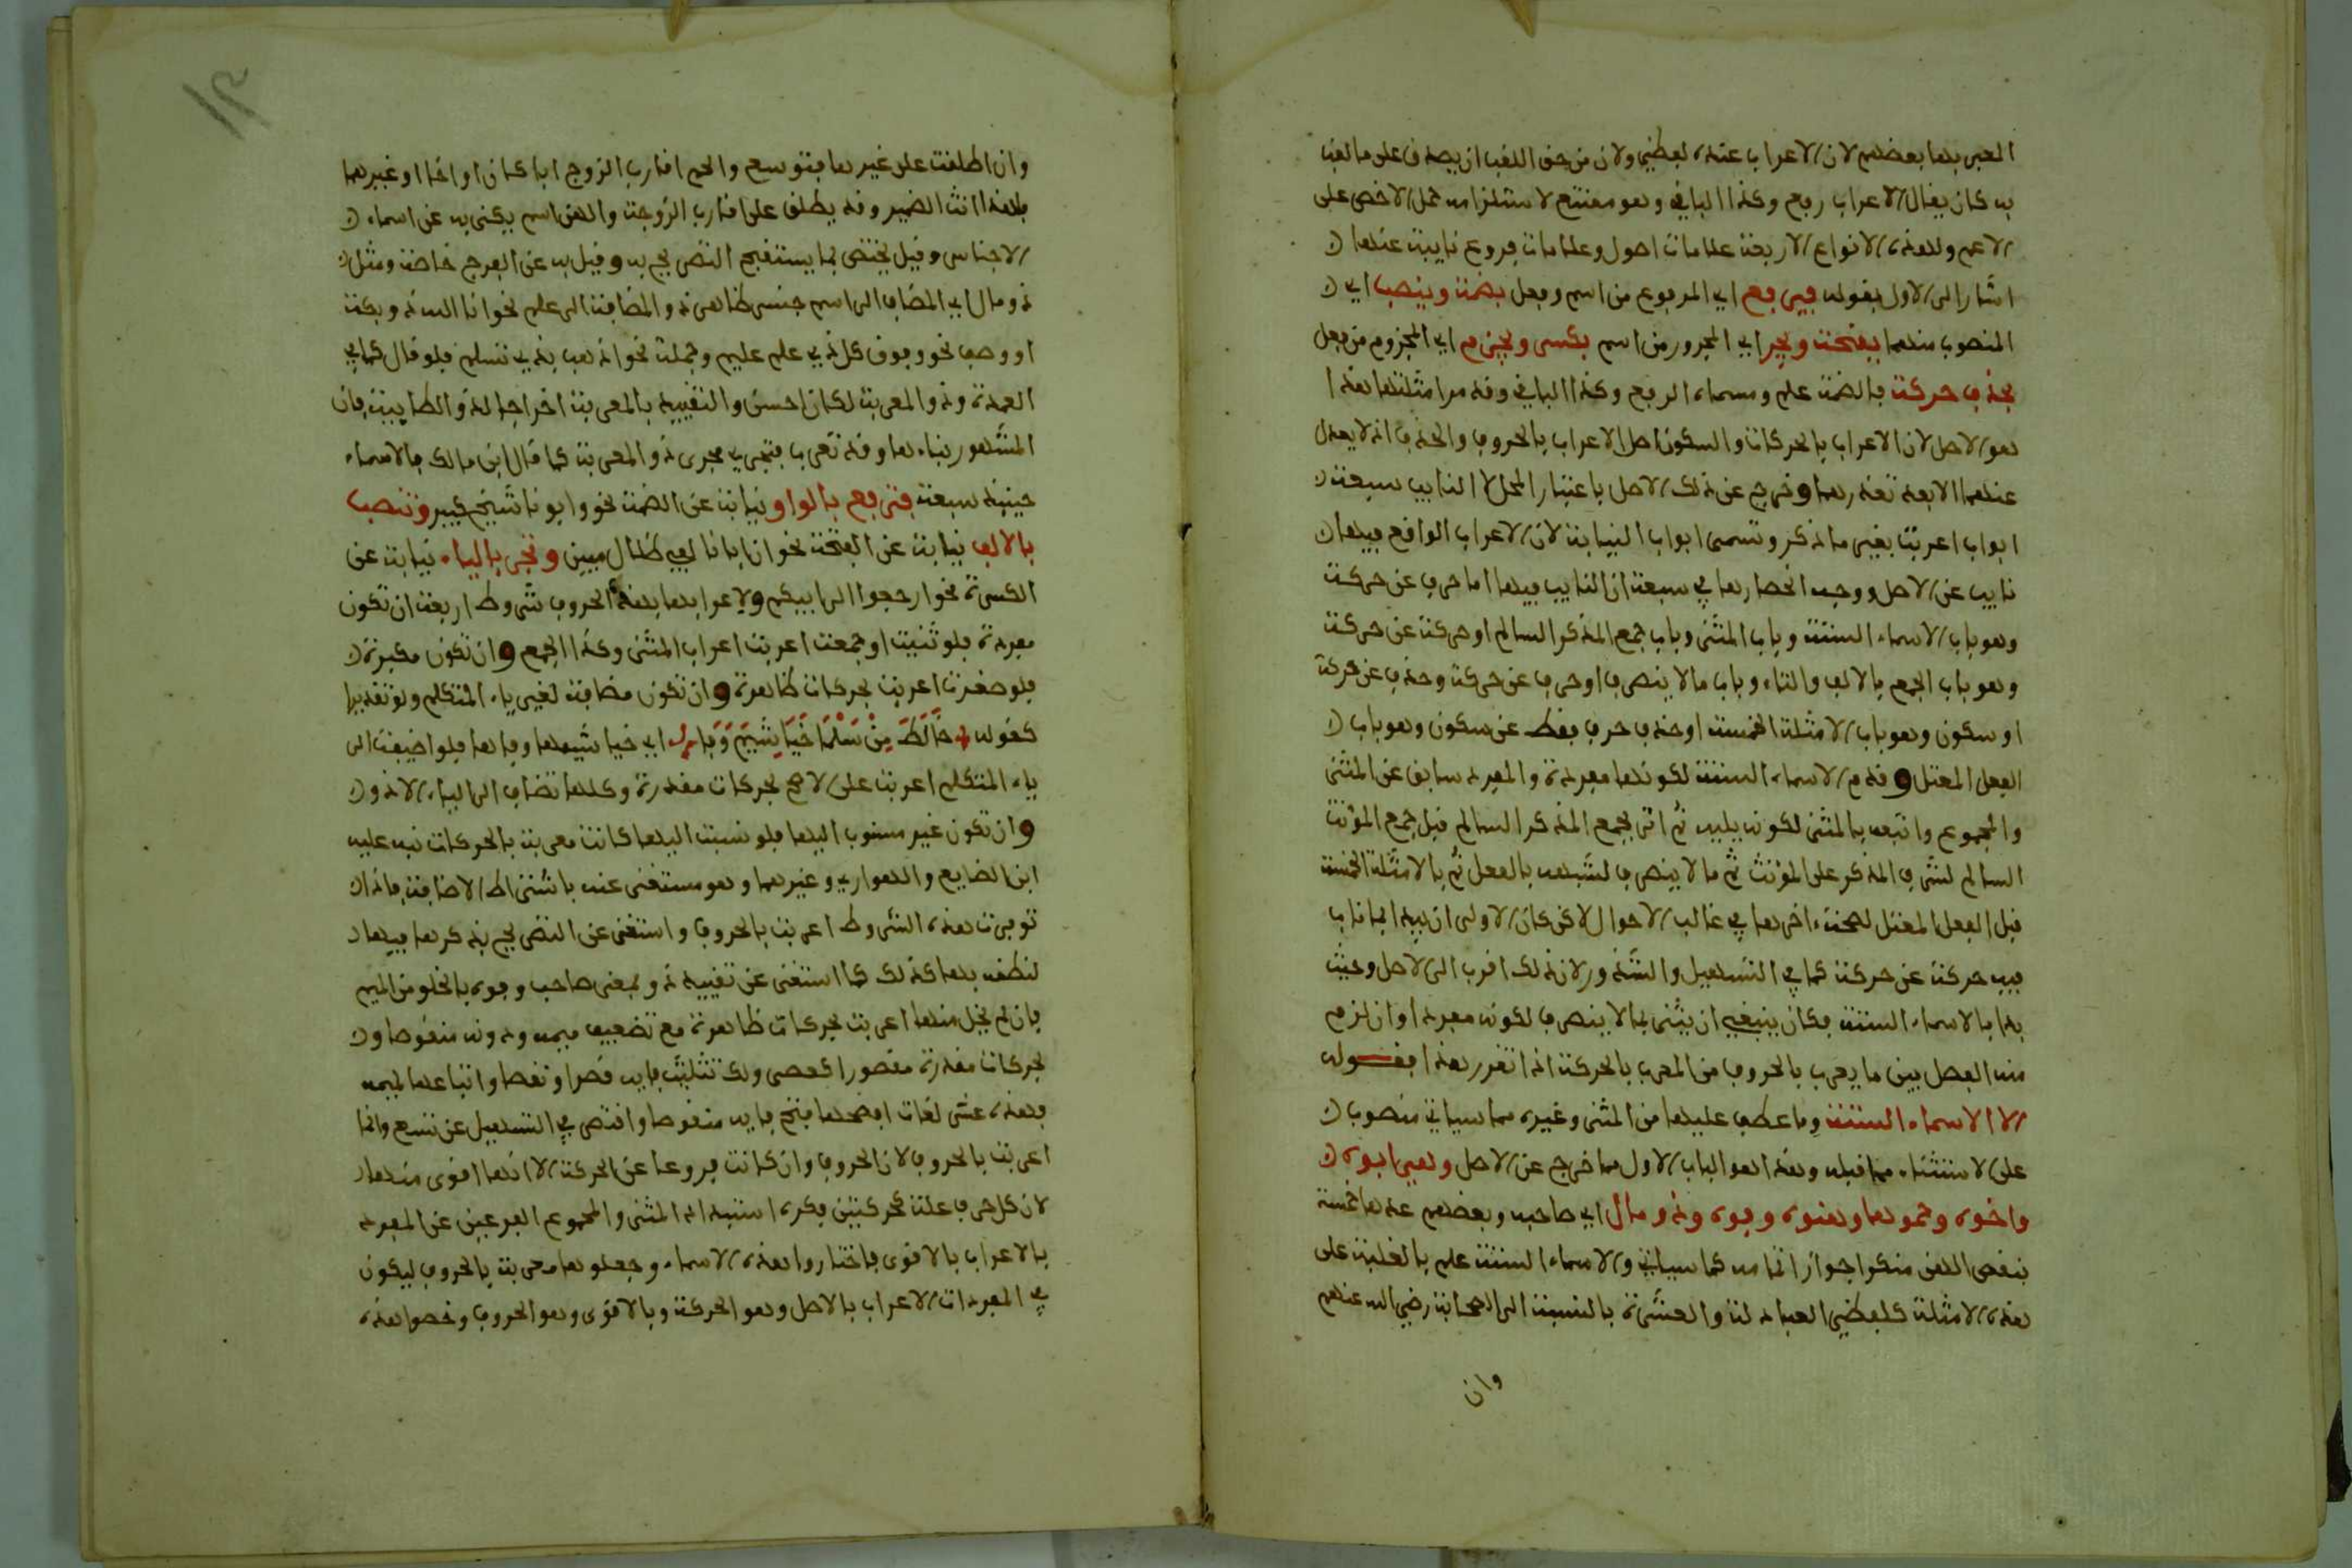 المعبر بها بعضهم لان الاعراب عنده لفظي ولان من حق اللقب ان يصدق على ما لقب
به كان يقال الاعراب رفع وكذا الباقي وهو ممتنع لاستلزامه حمل الاخص على
الاعم ولهذه الانواع الاربعة علامات اصول وعلامات فروع نايبة عنها
اشار الى الاول بقوله فيرفع اي المرفوع من اسم وفعل بضمة وينصب اي
المنصوب منهما بفتحة ويجر اي المجرور من اسم بكسرة ويجزم اي المجزوم من فعل
بحذف حركة فالضمة علم ومسماه الرفع وكذا الباقي وقد مر امثلتها هذا
هو الاصل لان الاعراب بالحركات والسكون اصل الاعراب بالحروف والحذف اذ لا يعدل
عنهما الا بعد تعذرهما وخرج عن ذلك الاصل باعتبار المحل لا النايب سبعة
ابواب اعربت بغير ما ذكر وتسمى ابواب النيابة لان الاعراب الواقع فيها
نايب عن الاصل ووجه انحصارها في سبعة ان النايب فيها اما حرف عن حركة
وهو باب الاسماء الستة وباب المثنى وباب جمع المذكر السالم او حركة عن حركة
وهو باب الجمع بالالف والتاء وباب ما لا ينصرف او حرف عن حركة وحذف عن حركة
او سكون وهو باب الامثلة الخمسة او حذف حرف فقط عن سكون وهو باب
الفعل المعتل وقدم الاسماء الستة لكونها مفردة والمفرد سابق عن المثنى
والمجموع واتبعه بالمثنى لكونه يليه ثم اتى بجمع المذكر السالم قبل جمع المؤنث
السالم لشرف المذكر على المؤنث ثم ما لا ينصرف لشبهه بالفعل ثم بالامثلة الخمسة
قبل الفعل المعتل لصحة اخرها في غالب الاحوال لاكن كان الاولى ان يبدا بما ناب
فيه حركة عن حركة كما في التسهيل والشذور لان ذلك اقرب الى الاصل وحيث
بدا بالاسماء الستة فكان ينبغي ان يثنى بما لا ينصرف لكونه مفردا وان لزم
منه الفصل بين ما يعرب بالحروف من المعرب بالحركة اذا تقرر هذا فقوله
الا الاسماء الستة وما عطف عليها من المثنى وغيره مما سياتي منصوب
على الاستثناء مما قبله وهذا هو الباب الاول مما خرج عن الاصل وهي ابوه
واخوه وحموها وهنوه وفوه وذو مال اي صاحبه وبعضهم عدها خمسة
بنقص الهن منكرا جواز اتمامه كما سياتي والاسماء الستة علم بالغلبة على
هذه الامثلة كلفظي العبادلة والعشرة بالنسبة الى الصحابة رضي الله عنهم
وان
وان اطلقت على غيرها فبتوسع والحم اقارب الزوج ابا كان او اخا او غيرهما
فلهذا انث الضمير وقد يطلق على اقارب الزوجة والهن اسم يكنى به عن اسماء
الاجناس وقيل يختص بما يستقبح التصريح به وقيل به عن الفرج خاصة ومثل
ذو مال اي المضاف الى اسم جنس ظاهر ذو المضافة الى علم نحو انا الله ذو بكة
او وصف نحو وفوق كل ذي علم عليم وجملة نحو اذهب بذي تسلم فلو قال كما في
العمدة وذو المعربة لكان احسن والتقييد بالمعربة اخراجا لذو الطايية فان
المشهور بناءها وقد تعرب فتجري مجرى ذو المعربة كما قال ابن مالك فالاسماء
حينيذ سبعة فترفع بالواو نيابة عن الضمة نحو وابونا شيخ كبير وتنصب
بالالف نيابة عن الفتحة نحو ان ابانا لفي ظلال مبين وتجر بالياء نيابة عن
الكسرة نحو ارجعوا الى ابيكم ولاعرابها بهذه الحروف شروط اربعة ان تكون
مفردة فلو ثنيت او جمعت اعربت اعراب المثنى وكذا الجمع وان تكون مكبرة
فلو صغرت اعربت بحركات ظاهرة وان تكون مضافة لغير ياء المتكلم ولو تقديرا
كقوله خالط من سلمى خياشيم وفا اي خياشيمها وفاها فلو اضيفت الى
ياء المتكلم اعربت على الاصح بحركات مقدرة وكلها تضاف الى الياء الا ذو
وان تكون غير منسوب اليها فلو نسبت اليها كانت معربة بالحركات نبه عليه
ابن الضايع والهواري وغيرهما وهو مستغنى عنه باشتراط الاضافة فاذا
توفرت هذه الشروط اعربت بالحروف واستغنى عن التصريح بذكرها فيها
لنطقه بها كذلك كما استغنى عن تقييد ذو بمعنى صاحب وفوه بالخلو من الميم
فان لم يخل منها اعربت بحركات ظاهرة مع تضعيف ميمه ودونه منقوصا و
بحركات مقدرة مقصورا كعصى ولك تثليث فايه قصرا ونقصا واتباعها لميمه
فهذه عشر لغات افصحها فتح فايه منقوصا واقتصر في التسهيل عن تسع وانما
اعربت بالحروف لان الحروف وان كانت فروعا عن الحركة الا انها اقوى منها
لان كل حرف علة كحركتين فكره استبداد المثنى والمجموع الفرعين عن المفرد
بالاعراب بالاقوى فاختاروا هذه الاسماء وجعلوها معربة بالحروف ليكون
في المفردات الاعراب بالاصل وهو الحركة وبالاقوى وهو الحروف وخصوا هذه